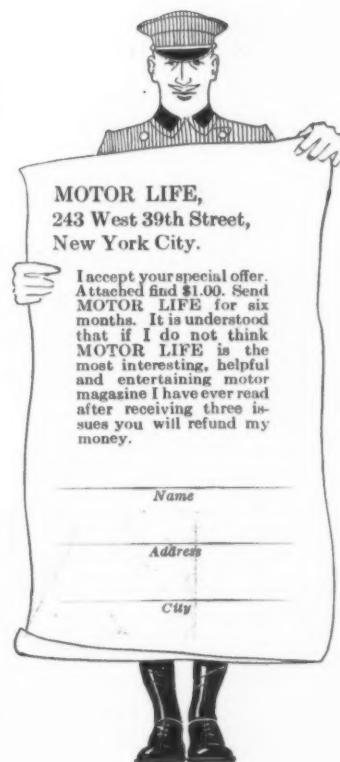 MOTOR LIFE,
243 West 39th Street,
New York City.
I accept your special offer.
Attached find $1.00. Send
MOTOR LIFE for six
months. It is understood
that if I do not think
MOTOR LIFE is the
most interesting, helpful
and entertaining motor
magazine I have ever read
after receiving three is-
sues you will refund my
money.
Name
Address
City